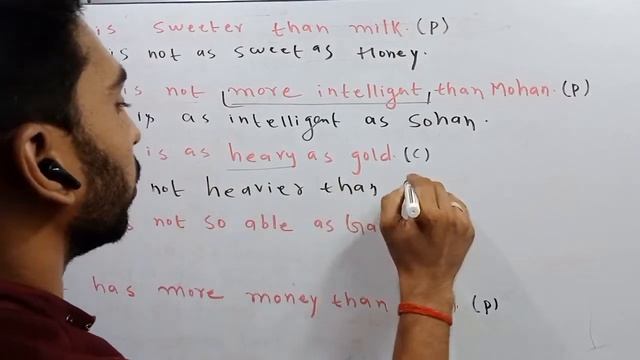 is sweeter than milk. (P)
is not as sweet as Honey.
is not more intelligent, than Mohan. (P)
as intelligent as Sohan.
is as heavy as gold. (C)
not heavier than
not so able as
has more money than (P)